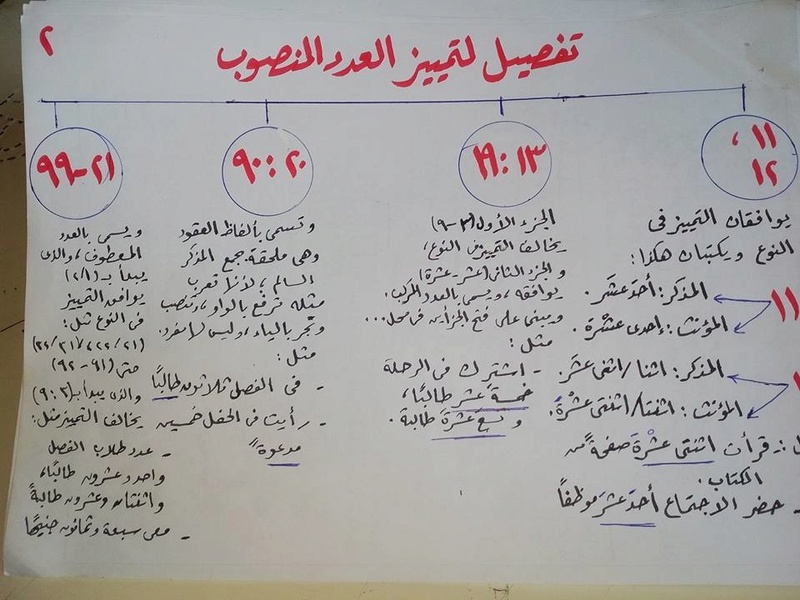 ٢
تفصيل لتمييز العدد المنصوب
١١ ،
١٢
يوافقان التمييز فى
النوع ويكتبان هكذا :
١١
المذكر : أحدَ عشَر .
المؤنث : إحدى عشْرة .
المذكر : اثنا / اثنى عشَر .
المؤنث : اثنتا / اثنتى عشْرة .
قرأت اثنتى عشْرة صفحةً من
الكتاب .
- حضر الاجتماع أحدَ عشَر موظفاً
١٣ : ١٩
الجزء الأول (٣-٩)
يخالف التمييز فى النوع ،
والجزء الثانى (عشر - عشرة)
يوافقه ، ويسمى بالعدد المركب .
ومبنى على فتح الجزأين فى محل ...
مثل :
- اشترك فى الرحلة
خمسةَ عشَر طالبًا ،
و تسعَ عشْرةَ طالبة .
٢٠ : ٩٠
وتسمى بألفاظ العقود
وهى ملحقة بجمع المذكر
السالم ، لأنها تعرب
مثله ترفع بالواو ، وتنصب
وتجر بالياء ، وليس لها مفرد .
مثل :
- فى الفصل ثلاثون طالبًا
- رأيت فى الحفل خمسين
مدعوةً
٢١-٩٩
ويسمى بالعدد
المعطوف ، والذى
يبدأ بـ (٢/١)
يوافق التمييز
فى النوع مثل :
حتى (٩١-٩٢)
والذى يبدأ بـ (٣ : ٩)
يخالف التمييز مثل :
- عدد طلاب الفصل
واحد وعشرون طالبًا ،
واثنتان وعشرون طالبةً
- معى سبعة وثمانون جنيهًا